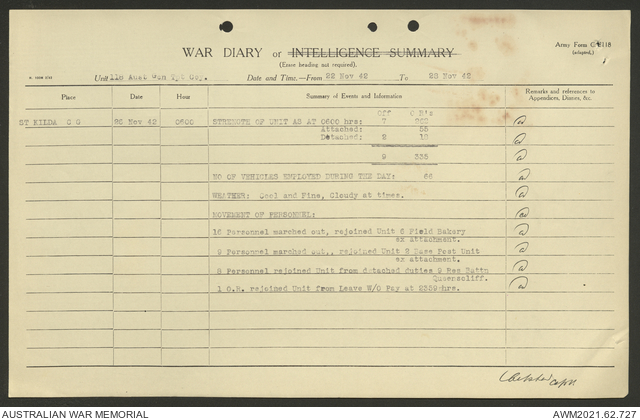 WAR DIARY or INTELLIGENCE SUMMARY
Army Form C 2118
(adapted.)
(Erase heading not required).
Unit 118 Aust Gen Tpt Coy. Date and Time.—From 22 Nov 42 To 23 Nov 42
Place Date Hour Summary of Events and Information Remarks and references to
Appendices, Diaries, &c.
Off O R's
ST KILDA 23 Nov 42 0600 STRENGTH OF UNIT AS AT 0600 hrs: 7
Attached: 55
Detached: 2 12
9 335
NO OF VEHICLES EMPLOYED DURING THE DAY: 66
WEATHER: Cool and Fine, Cloudy at times.
MOVEMENT OF PERSONNEL:
16 Personnel marched out, rejoined Unit 6 Field Bakery
ex attachment.
9 Personnel marched out,, rejoined Unit 2 Base Post Unit
ex attachment.
8 Personnel rejoined Unit from detached duties 9 Rec Battn
Queenscliff.
1 O.R. rejoined Unit from Leave W/O Pay at 2359 hrs.
Capt
AUSTRALIAN WAR MEMORIAL AWM2021.62.727